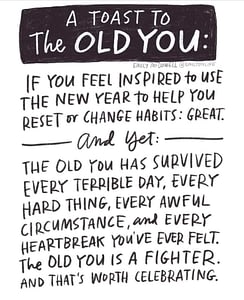 A TOAST TO
The OLD YOU:
EMILY McDOWELL @EMILYONLIFE
IF YOU FEEL INSPIRED to USE
THE NEW YEAR to HELP YOU
RESET or CHANGE HABITS: GREAT.
And Yet:
THE OLD YOU HAS SURVIVED
EVERY TERRIBLE DAY, EVERY
HARD THING, EVERY AWFUL
CIRCUMSTANCE, and EVERY
HEARTBREAK YOU'VE EVER FELT.
The OLD YOU IS A FIGHTER.
AND THAT'S WORTH CELEBRATING.